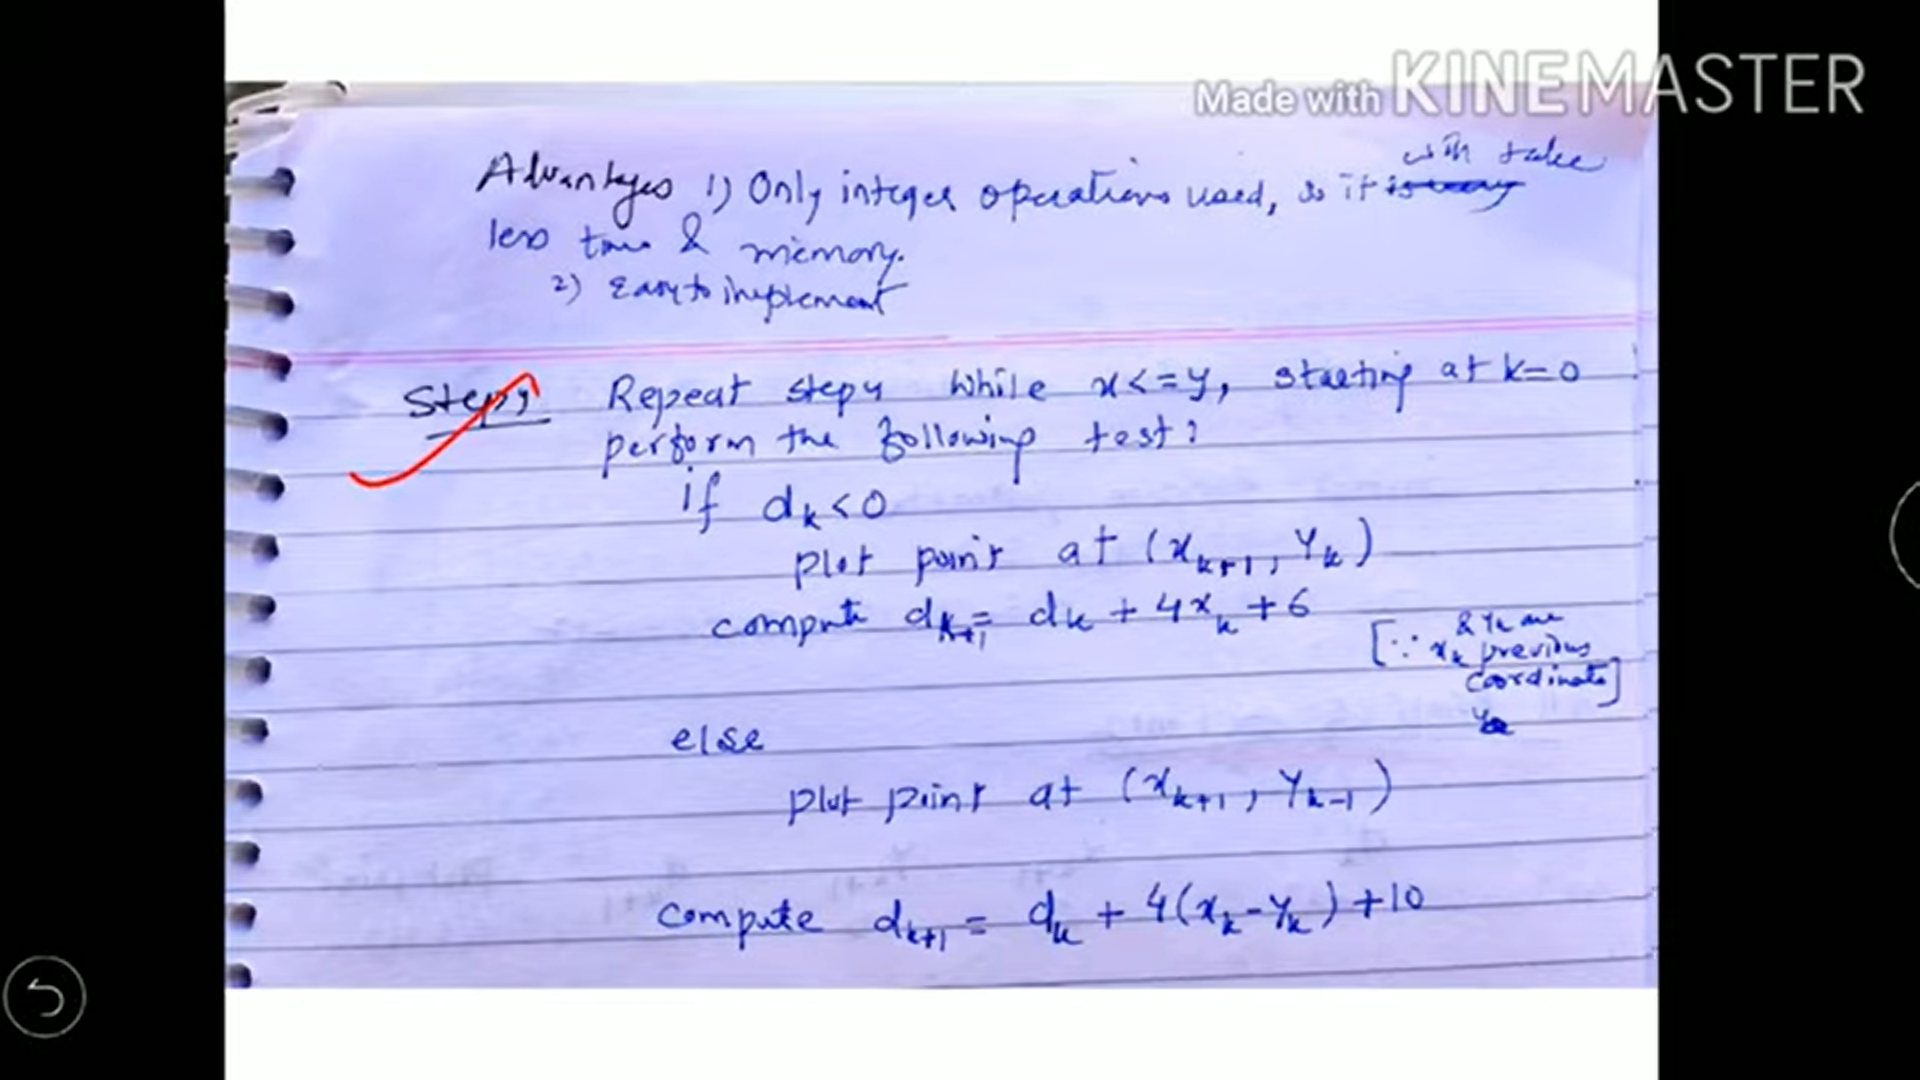 Made with KINEMASTER
will take
Advantages 1) Only integer operations used, so it is very
less time & memory.
2) Easy to implement
Repeat step 4 while x<=y, starting at k=0
perform the following test:
if dₖ<0
plot point at (xₖ₊₁, Yₖ)
compute dₖ₊₁= dₖ + 4xₖ +6
& Yₖ are
[∵ xₖ previous
coordinate]
else
plot point at (xₖ₊₁, Yₖ₋₁)
compute dₖ₊₁ = dₖ + 4(xₖ-Yₖ) +10